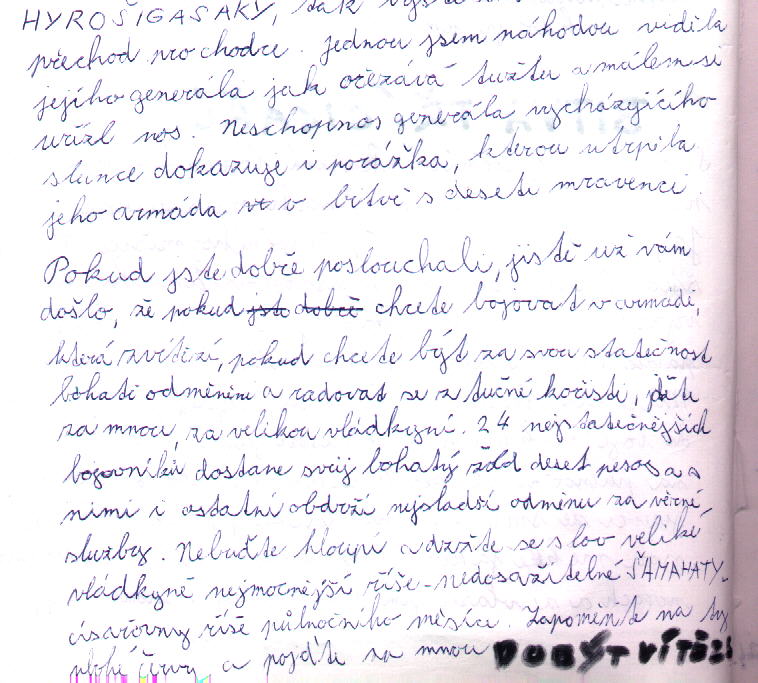 HYROŠIGASAKY, tak
přechod pro chodce. Jednou jsem náhodou viděla
jejího generála jak ořezává tužku a málem si
uřízl nos. Neschopnos generála vycházejícího
slunce dokazuje i porážka, kterou utrpěla
jeho armáda vt v bitvě s deseti mravenci.
Pokud jste dobře poslouchali, jistě už vám
došlo, že pokud jste dobře chcete bojovat v armádě,
která zvítězí, pokud chcete být za svou statečnost
bohatě odměněni a radovat se z tučné kořisti, jděte
za mnou, za velikou vládkyní. 24 nejstatečnějších
bojovníků dostane svůj bohatý žold deset pesos a s
nimi i ostatní obdrží nejsladší odměnu za věrné
služby. Nebuďte hloupí a držte se slov veliké
vládkyně nejmocnější říše - nedosažitelné ŠAMAHATY -
císařovny říše půlnočního měsíce. Zapomeňte na ty
ubohé červy a pojďte za mnou DOBÝT VÍTĚZS